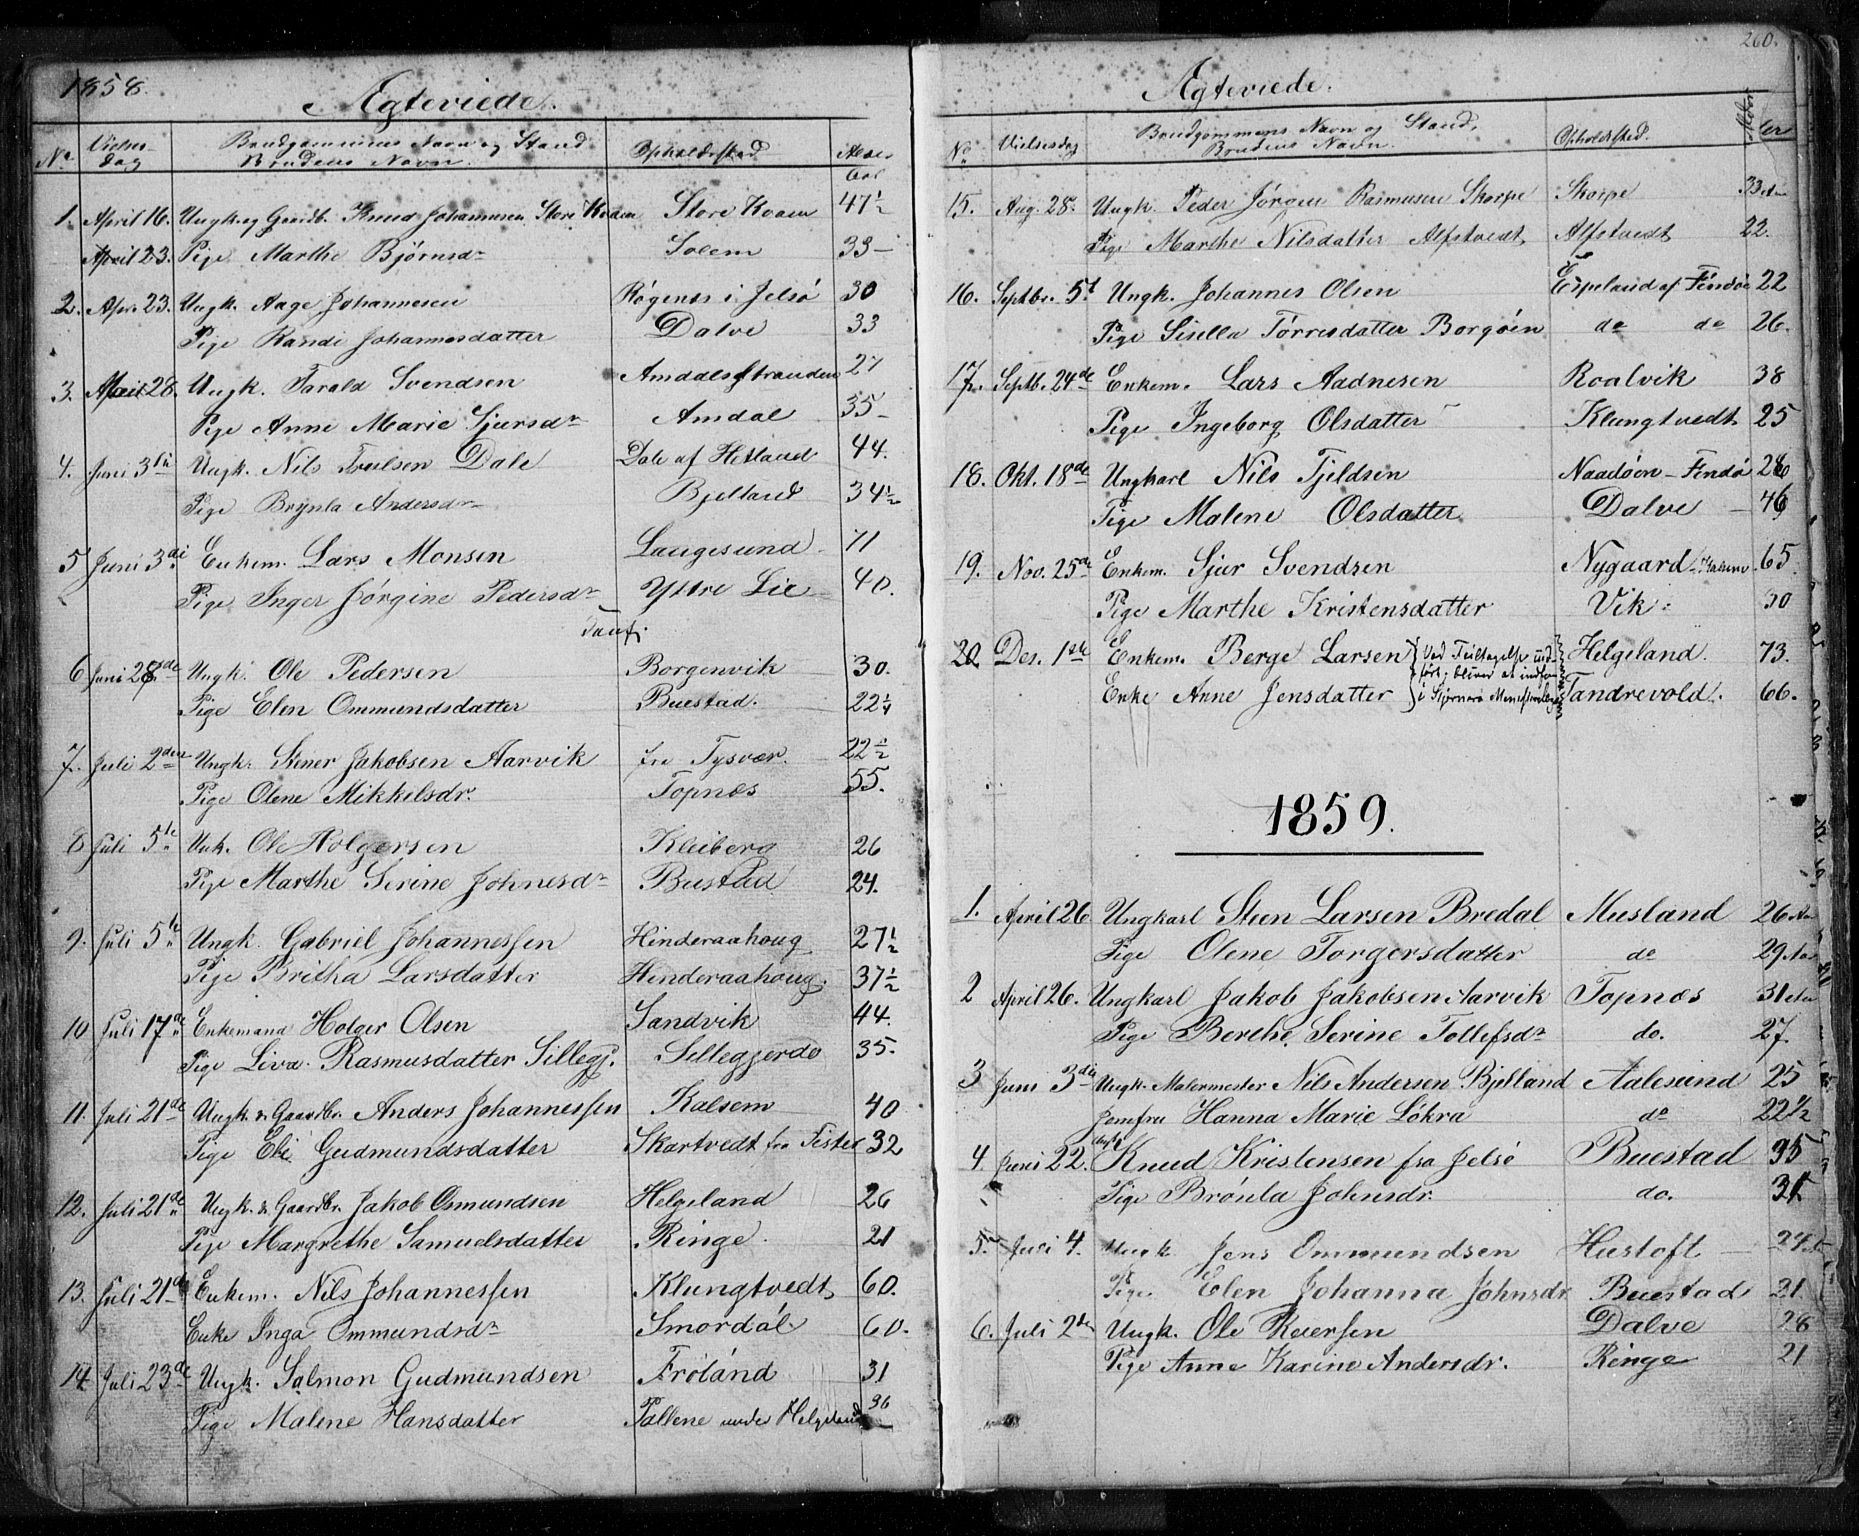 1858.
Ægteviede.
No. Vielses-dag Brudgommens Navn og Stand Brudens Navn. Opholdssted Alder
1. April 16. Ungk. og Gaardb. Knud Johannesen Store Kvam Store Kvam 47½
April 23. Pige Marthe Bjørnsdr Solem 33
2. Apr. 23. Ungk. Aage Johannesen Røgenes i Jelsø 30
Pige Randi Johannesdatter Dalve 33
3. 28. Ungk. Tarald Svendsen Amdalsstranden 27
Pige Anne Marie Sjursdr Amdal 35
4. Juni 3die Ungk. Nils Dale Dale af Hetland 44.
Pige Brynla Andersdr Bjelland 34½
5 Juni 3di Enkem. Lars Monsen Langesund 71
Pige Inger Jørgine Pedersdr Yttre Lie 40.
6 Juni 28de Ungk. Ole Pedersen Borgenvik 30.
Pige Elen Ommundsdatter Buestad. 22¼
7. Juli 2den Ungk. Stener Jakobsen Aarvik fra Tysvær. 22½
Pige Olene Mikkelsdr. Topnæs 55.
8 Juli 5te Unk. Ole Holgersen Kleiberg 26
Pige Marthe Serine Johnesdr Buestad 24.
9. Juli 5te Ungk. Gabriel Johannessen Hinderaahoug 27½
Pige Britha Larsdatter Hinderaahoug. 37½
10 Juli 17de Enkemand Holger Olsen Sandvik 44.
Pige Liva Rasmusdatter Sillegj. Sillegjerde 35.
11. Juli 21de Ungk. & Gaardbr. Anders Johannessen Kalsem 40
Pige Eli Gudmundsdatter Skartvedt fra Fister 32
12. Juli 21de Ungk. & Gaardbr. Jakob Osmundsen Helgeland 26
Pige Margrethe Samuelsdatter Ringe. 21
13. Juli 21de Enkem. Nils Johannessen Klungtvedt 60.
Enke Inga Ommundsdr Smordal 60.
14 Juli 23de Ungk. Salmon Gudmundsen Frøland 31
Pige Malene Hansdatter Pallene under Helgeland 36
260.
Ægteviede.
No. Vielsesdag Brudgommens Navn og Stand, Brudens Navn. Opholdssted. Alder
15. Aug. 28. Ungk. Peder Jørgen Rasmusen Skorpe Skorpe 33
Pige Marthe Nilsdatter Alfstvedt Alfstvedt 22.
16. Septbr. 5t Ungk. Johannes Olsen Espeland af Findø 22
Pige Sisella Torresdatter Borgøen do do 26.
17. Septb. 24de Enkem. Lars Aadnesen Roalvik 38
Pige Ingeborg Olsdatter Klungtvedt 25
18. Okt. 18de Ungkarl Nils Tjeldsen Naadøen - Findø 28
Pige Malene Olsdatter Dalve 46
19. Nov. 25de Enkem. Sjur Svendsen Nygaard 65
Pige Marthe Kristensdatter Vik 30
20. Des. 1ste Enkem. Berge Larsen Helgeland. 73.
Ved Feiltagelse ind-ført, bliver at indføres
Enke Anne Jensdatter Tandrevold. 66.
1859.
1. April 26 Ungkarl Steen Larsen Bredal Musland 26
Pige Olene Torgersdatter do 29
2 April 26. Ungkarl Jakob Jakobsen Aarvik Topnæs 31
Pige Berthe Serine Tollefsdr do. 27.
3 Juni 3die Ungk. Malermester Nils Andersen Bjelland Aalesund 25
Jomfru Hanna Marie Løkra do 22½
4. Juni 22. Ungk. Knud Kristensen fra Jelsø Buestad 35
Pige Brønla Johnsdr. do. 31
5. Juli 4. Ungk Jens Ommundsen Hustoft 24
Pige Elen Johanna Johnsdr Buestad 21
6. Juli 2de Ungk. Ole Reiersen Dalve 28
Pige Anne Karine Andersdr. Ringe 21